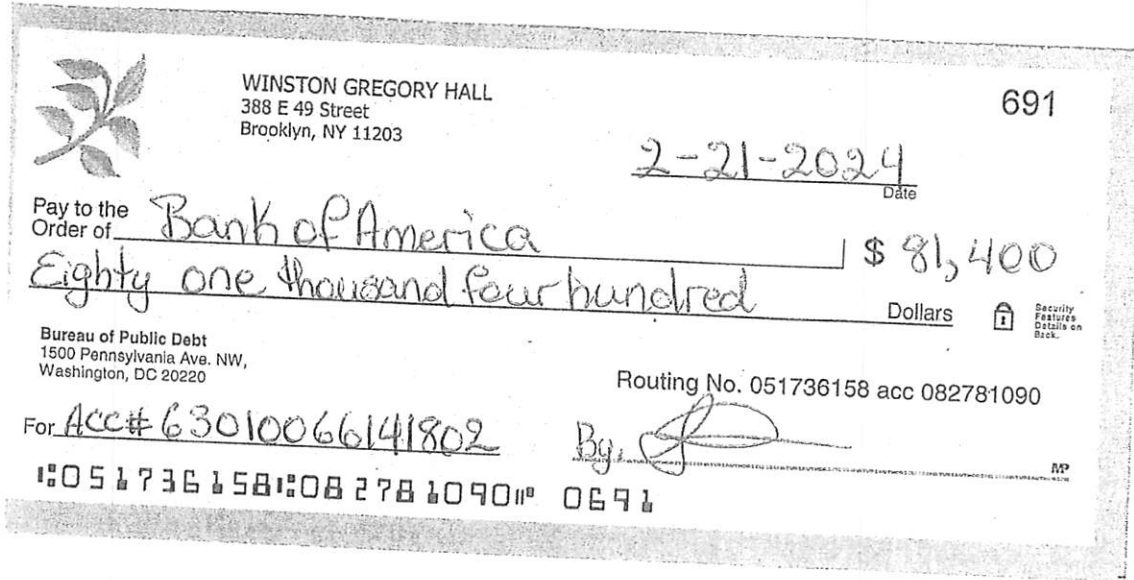 WINSTON GREGORY HALL 691
388 E 49 Street
Brooklyn, NY 11203
2-21-2024
Date
Pay to the
Order of Bank of America $ 81,400
Eighty one thousand four hundred Dollars
Security
Features
Details on
Back.
Bureau of Public Debt
1500 Pennsylvania Ave. NW,
Washington, DC 20220
Routing No. 051736158 acc 082781090
For Acc# 63010066141802 By.
MP
⑆051736158⑆082781090⑈ 0691